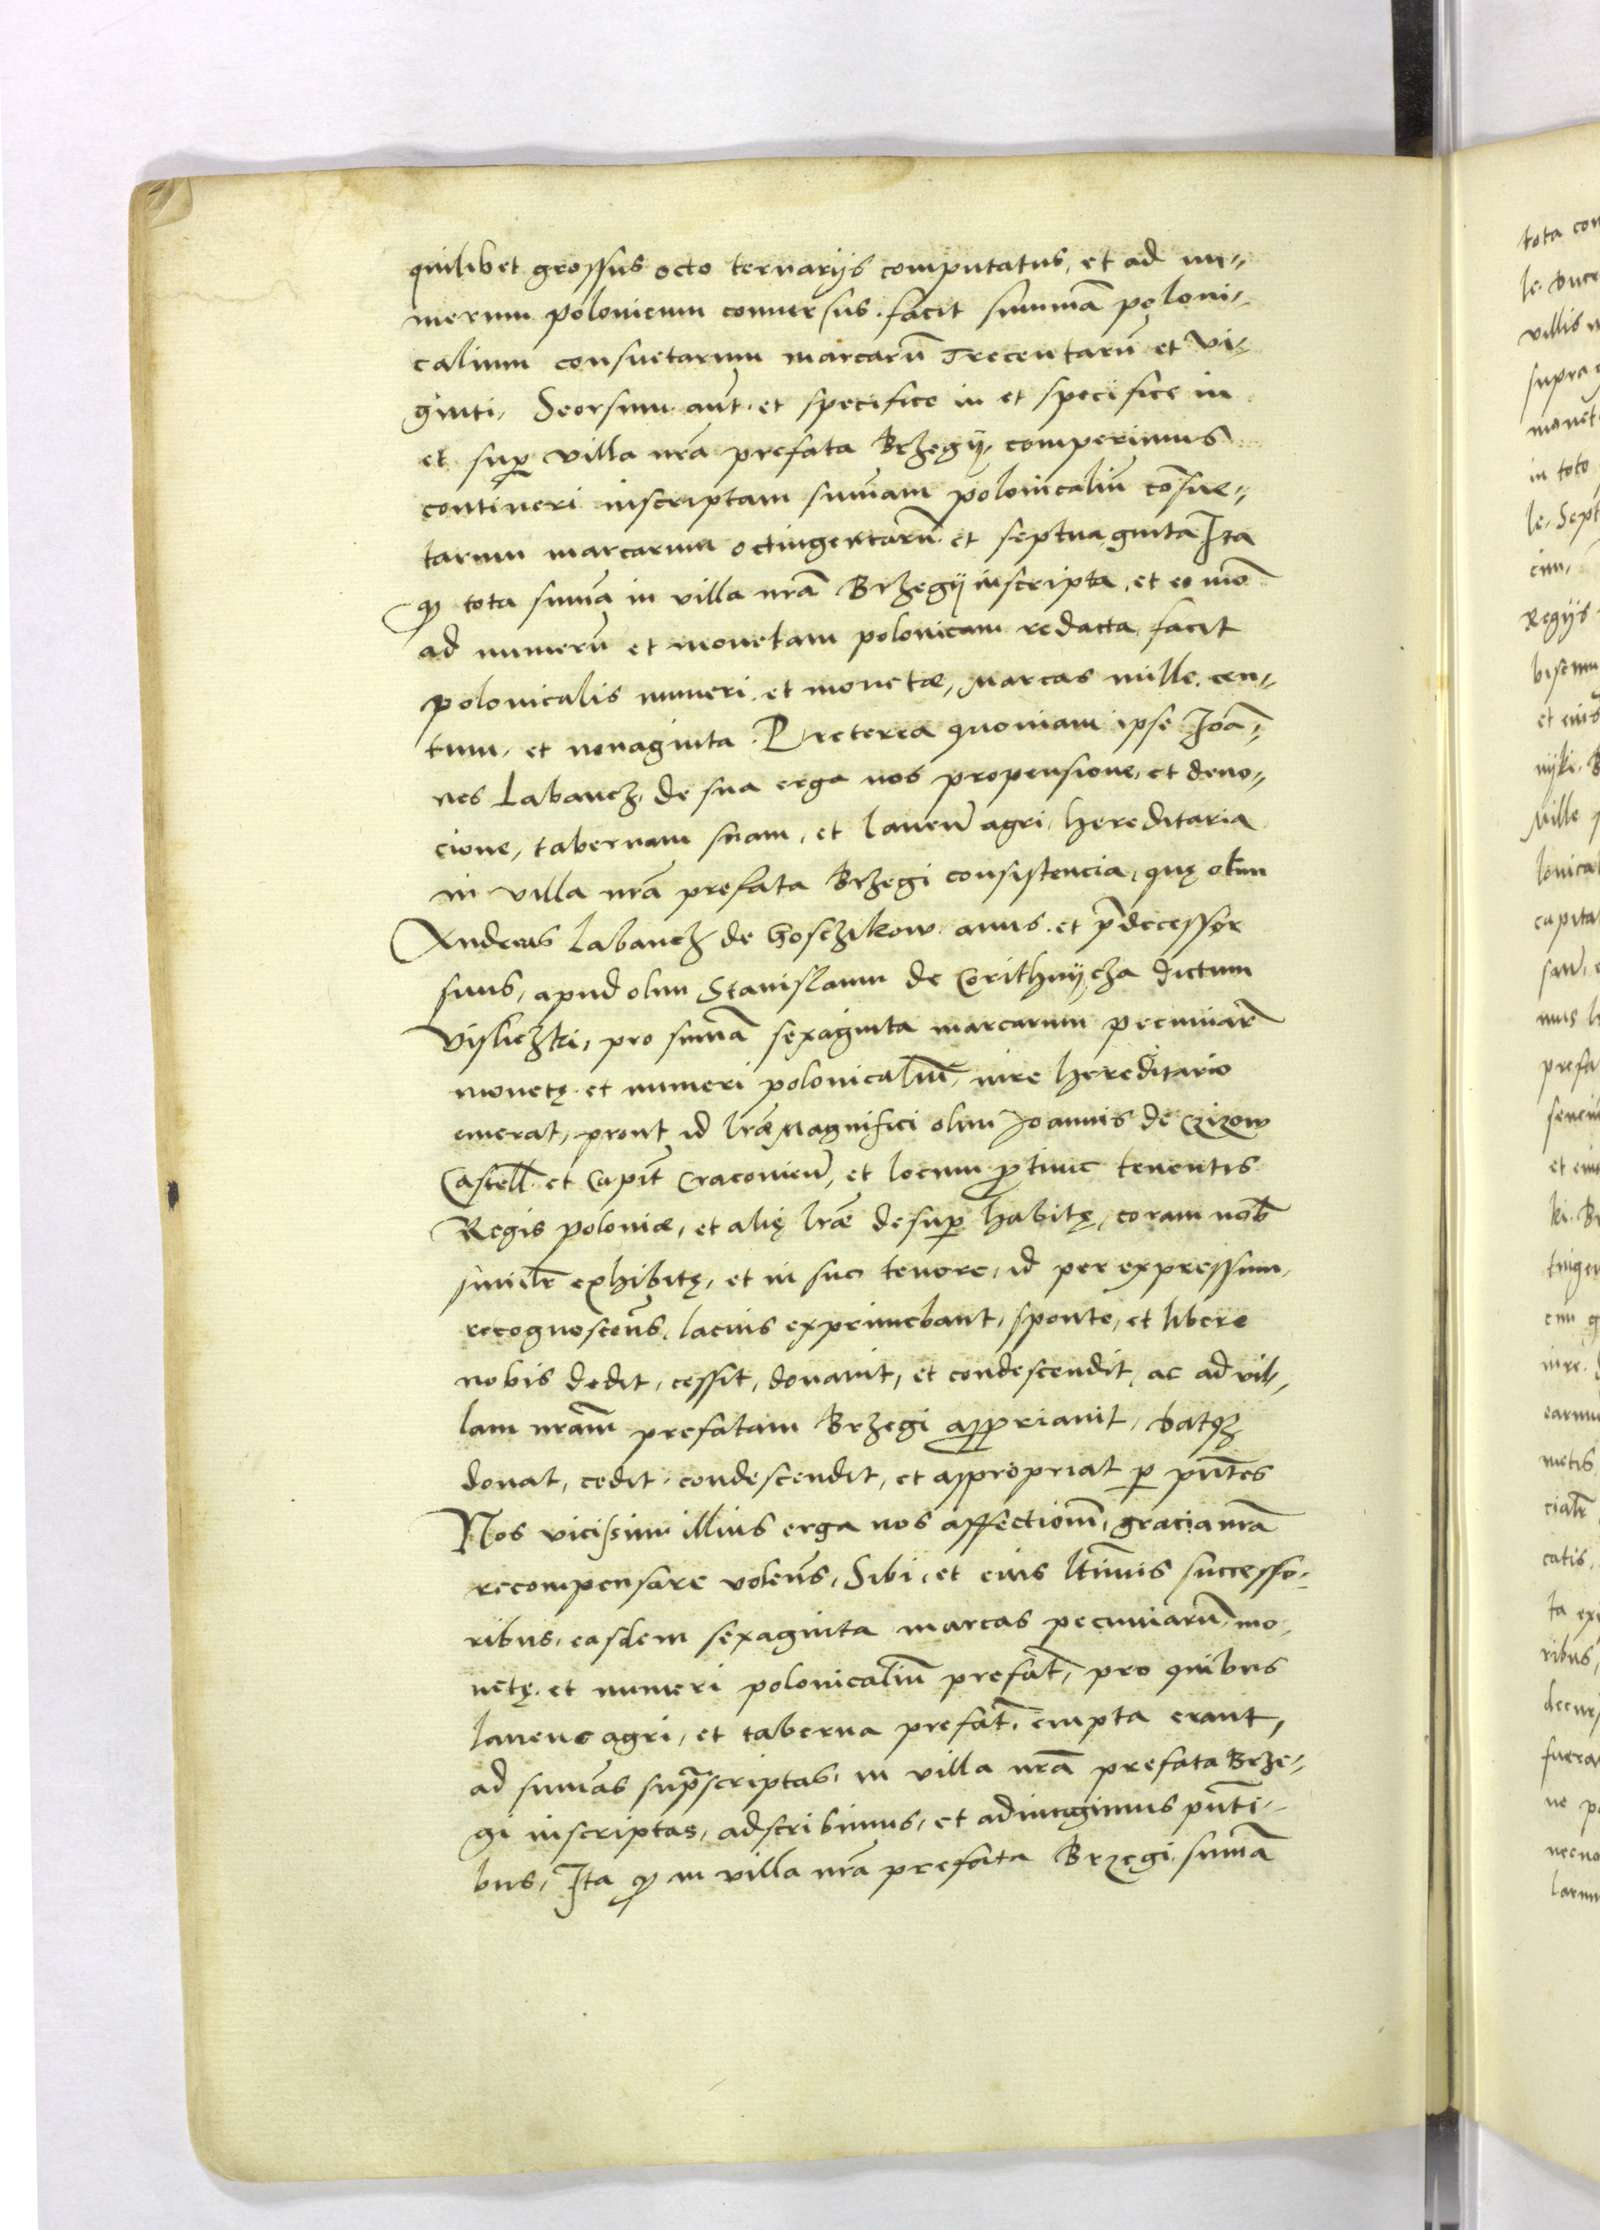 quilibet grossus octo ternarijs computatus, et ad nu-
merum polonicum conuersus. facit summā poloni-
calium consuetarum marcarū Trecentarū et Vi-
ginti, Seorsim aūt. et specifice in et specifice in
et sup villa nrā prefata Brzegij, comperimus
contineri inscriptam sumam polonicaliū cōsue-
tarum marcarum octingentarū et septuaginta Ita
q tota sumā in villa nrā Brzegij inscripta, et eo mō
ad numerū et monetam polonicam redacta, facit
polonicalis numeri et monetæ, Marcas mille. cen-
tum, et nonaginta. Preterea quoniam ipse Joā-
nes Labancz, de sua erga nos propensione, et deuo-
cione, tabernam suam, et laneū agri, hereditaria
in villa nrā prefata Brzegi consistencia, quę olim
Andreas Labancz de Goszikow auus. et p̄decessor
suus, apud olim Stanislaum de Corithnijcza dictum
Visliczki, pro sumā sexaginta marcarum pecuniar̄
monetę et numeri polonicaliū, iure hereditario
emerat, prout id lr̄æ Magnifici olim Joannis de Czizow
Castell. et Capit̄ Cracouien̄, et locum p tunc tenentis
Regis poloniæ, et alię lr̄æ desup habitę, coram nob̄
similr̄ exhibitę, et in suo tenore, id per expressum,
recognoscen̄s, lacius exprimebant, sponte, et libere
nobis dedit, cessit, donauit, et condescendit, ac ad vil-
lam nram̄ prefatam Brzegi appriauit, Datqz
donat, cedit. condescendit, et appropriat p pn̄tes
Nos vicissim illius erga nos affectionē, gracia nrā
recompensare volen̄s, Sibi, et eius ltīmis successo-
ribus, easdem sexaginta marcas pecuniarū, mo-
netę. et numeri polonicaliū prefat̄, pro quibus
laneus agri, et taberna prefat̄. empta erant,
ad sumas sup̄scriptas, in villa nrā prefata Brze-
gi inscriptas, adscribimus, et adiungimus pn̄ti-
bus, Ita q in villa nrā prefata Brzegi, sumā